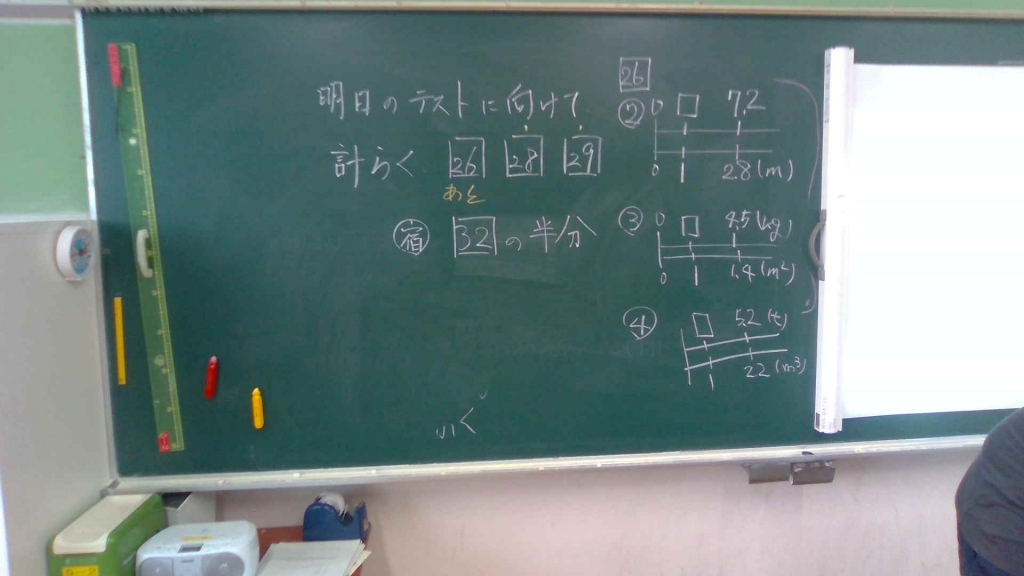 明日のテストに向けて
計らく 26 28 29
あそ
宿 32の半分
26
② 0 □ 7.2
0 1 2.8(m)
③ 0 □ 4.5(kg)
0 1 1.4(m²)
④ □ 5.2(t)
1 22(m³)